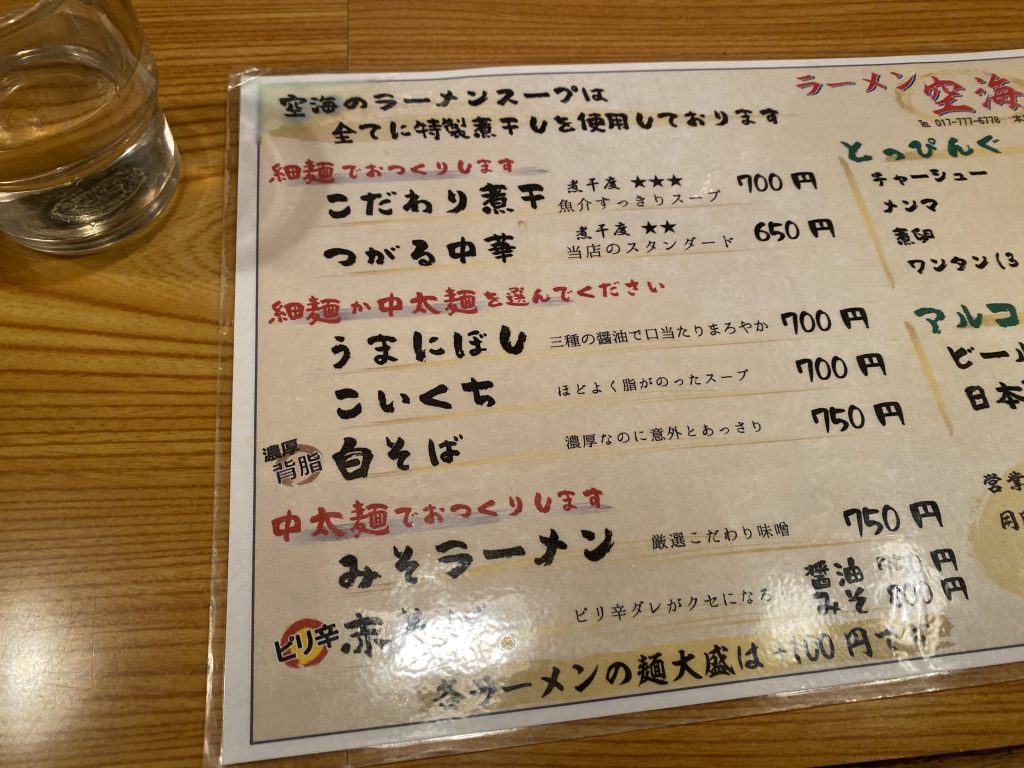 空海のラーメンスープは
全てに特製煮干しを使用しております
細麺でおつくりします
こだわり煮干 煮干度 ★★★ 魚介すっきりスープ 700円
つがる中華 煮干度 ★★ 当店のスタンダード 650円
細麺か中太麺を選んでください
うまにぼし 三種の醤油で口当たりまろやか 700円
こいくち ほどよく脂がのったスープ 700円
濃厚背脂 白そば 濃厚なのに意外とあっさり 750円
中太麺でおつくりします
みそラーメン 厳選こだわり味噌 750円
ピリ辛 赤そば ピリ辛ダレがクセになる! 醤油 円
みそ 800円
各ラーメンの麺大盛は+100円です
ラーメン 空海
TEL 017-777-6778
とっぴんぐ
チャーシュー
メンマ
煮卵
ワンタン(3
アルコ
ビール
日本
営業
月